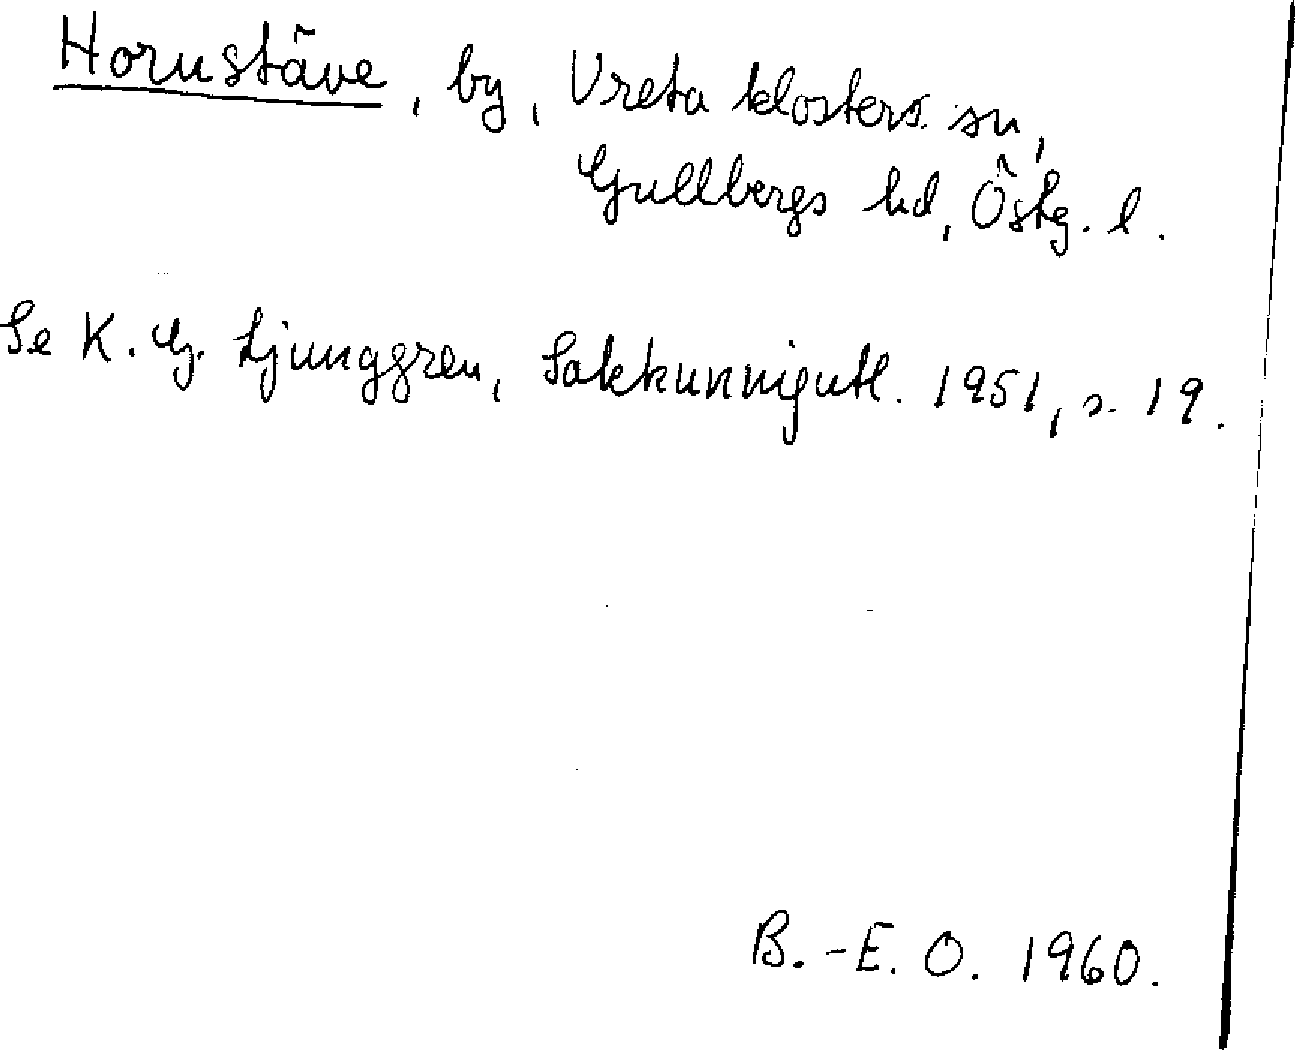 Hornstäve, by, Vreta klosters sn,
Gullbergs hd, Östg. l.
Se K. G. Ljunggren, Sakkunnigutl. 1951, s. 19.
B.-E. O. 1960.